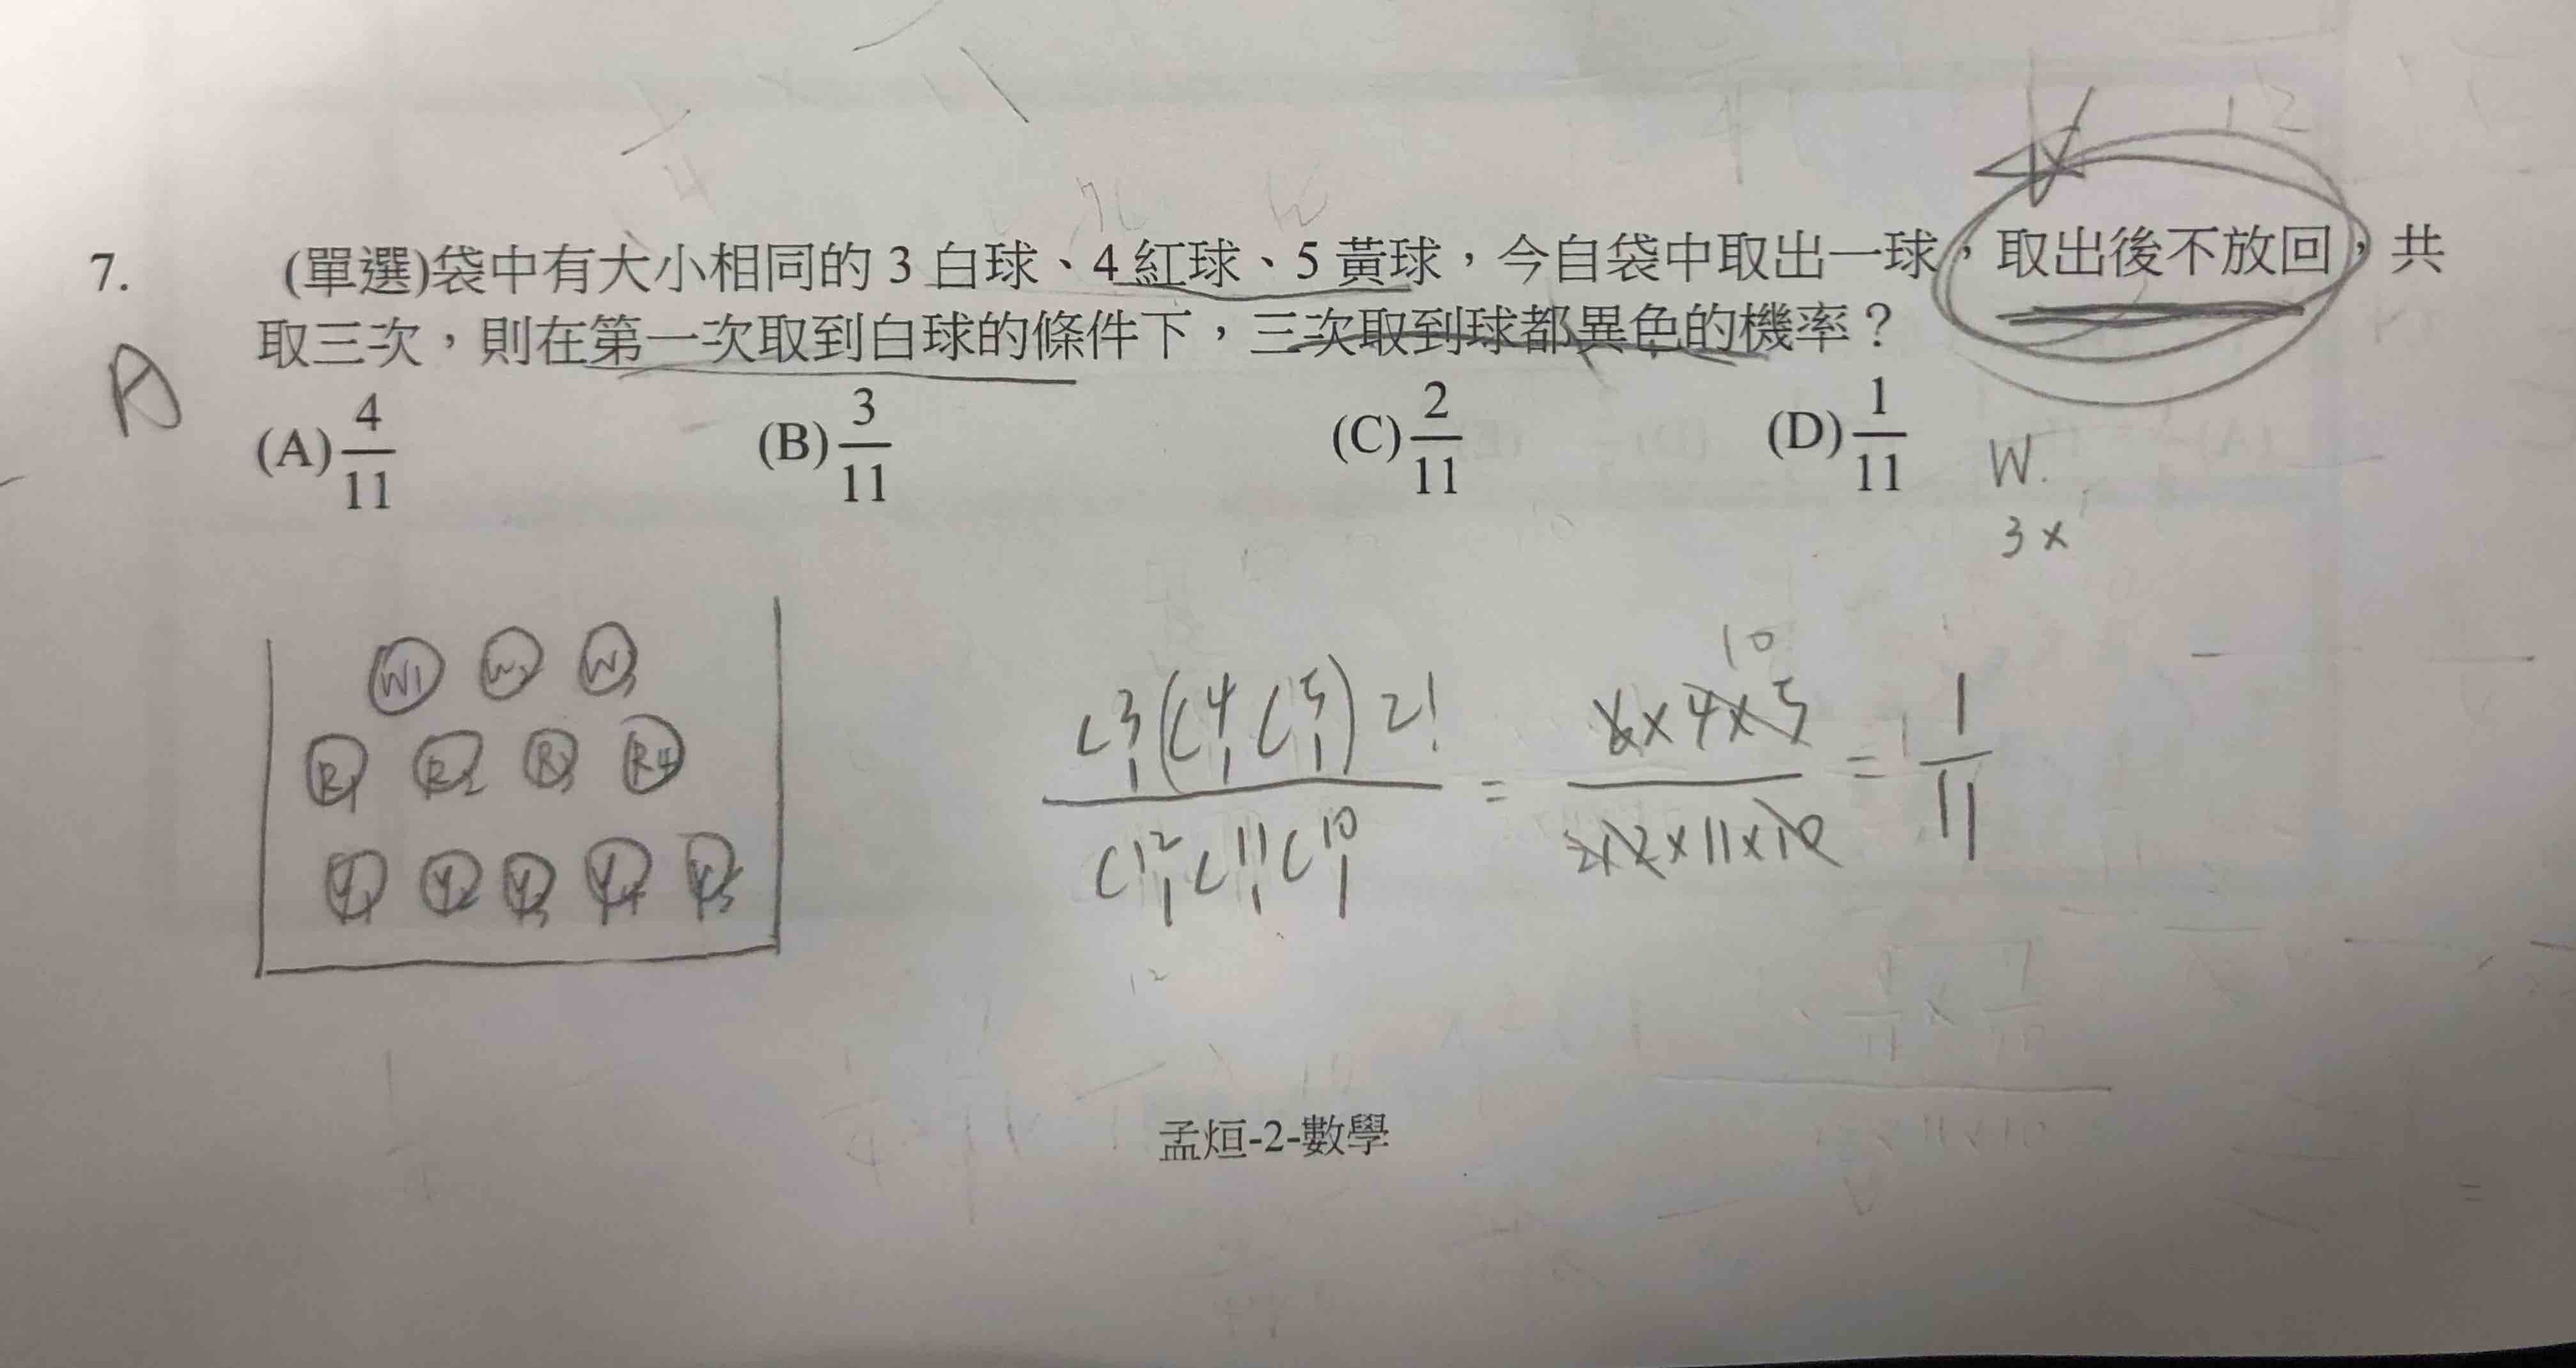 7. (單選)袋中有大小相同的 3 白球、4 紅球、5 黃球，今自袋中取出一球，取出後不放回，共
取三次，則在第一次取到白球的條件下，三次取到球都異色的機率？
A
(A) 4/11 (B) 3/11 (C) 2/11 (D) 1/11
W.
3×
W1 W2 W3
R1 R2 R3 R4
Y1 Y2 Y3 Y4 Y5
C^3_1(C^4_1 C^5_1) 2! / C^12_1 C^11_1 C^10_1 = 6×4×5 / ×11×10 = 1/11
10
12
孟烜-2-數學